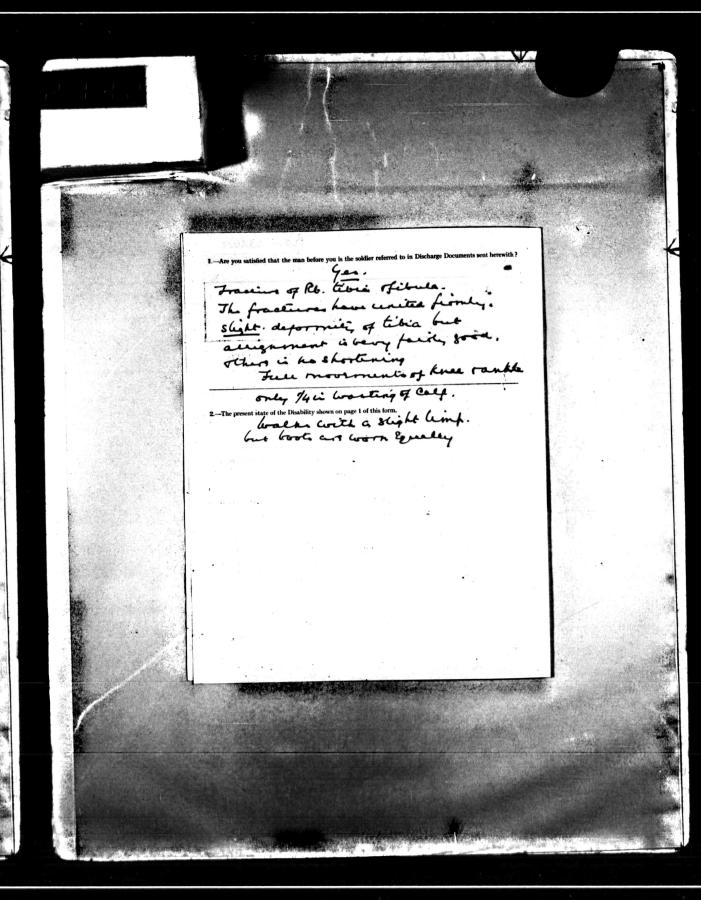 1.—Are you satisfied that the man before you is the soldier referred to in Discharge Documents sent herewith?
Yes.
of Rt. tibia & fibula.
The fractures have united firmly.
slight deformity of tibia but
allignment is very fairly good.
there is no shortening
Full movements of Knee & ankle
only 1/4 in wasting of Calf.
2.—The present state of the Disability shown on page 1 of this form.
Walks with a slight limp.
but boots are worn Equally